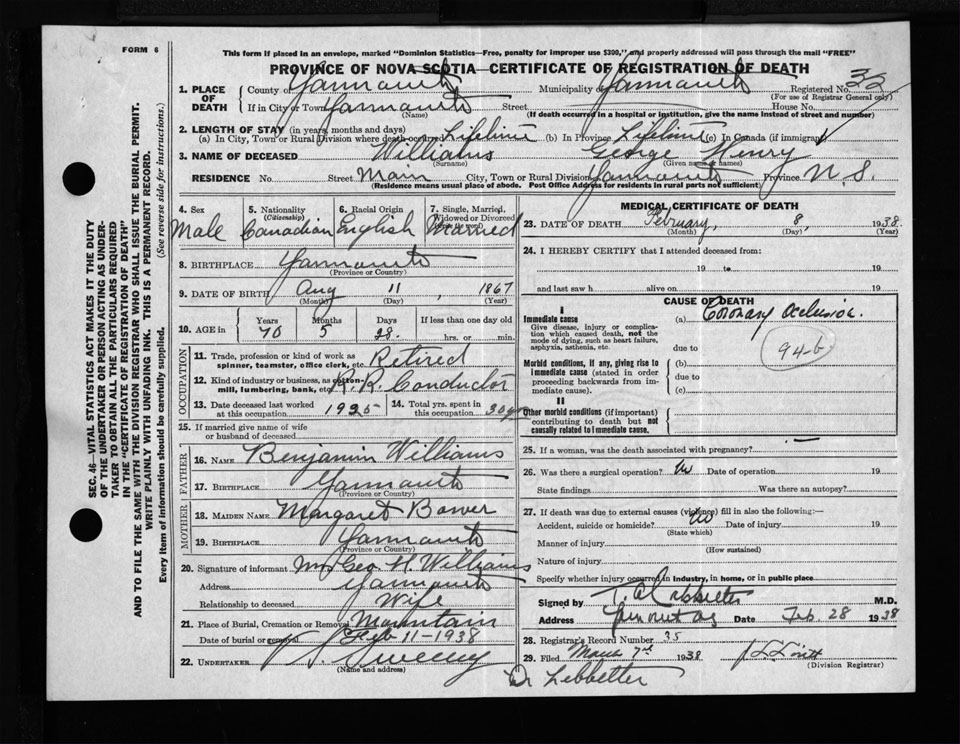 FORM 6
This form if placed in an envelope, marked "Dominion Statistics—Free, penalty for improper use $300," and properly addressed will pass through the mail "FREE"
PROVINCE OF NOVA SCOTIA—CERTIFICATE OF REGISTRATION OF DEATH
1. PLACE OF DEATH County of Yarmouth Municipality of Yarmouth Registered No. 32
(For use of Registrar General only)
If in City or Town Yarmouth Street House No.
(Name) (If death occurred in a hospital or institution, give the name instead of street and number)
2. LENGTH OF STAY (in years, months and days)
(a) In City, Town or Rural Division where death occurred Lifetime (b) In Province Lifetime (c) In Canada (if immigrant)
3. NAME OF DECEASED Williams George Henry
(Surname) (Given name or names)
RESIDENCE No. Street Main City, Town or Rural Division Yarmouth Province N.S.
(Residence means usual place of abode. Post Office Address for residents in rural parts not sufficient)
4. Sex 5. Nationality (Citizenship) 6. Racial Origin 7. Single, Married, Widowed or Divorced
Male Canadian English Married
8. BIRTHPLACE Yarmouth
(Province or Country)
9. DATE OF BIRTH Aug 11, 1867
(Month) (Day) (Year)
10. AGE in Years Months Days If less than one day old
70 5 28 hrs. or min.
OCCUPATION
11. Trade, profession or kind of work as spinner, teamster, office clerk, etc. Retired
12. Kind of industry or business, as cotton-mill, lumbering, bank, etc. R.R. Conductor
13. Date deceased last worked at this occupation 1925 14. Total yrs. spent in this occupation 30 yrs
15. If married give name of wife or husband of deceased
FATHER
16. NAME Benjamin Williams
17. BIRTHPLACE Yarmouth
(Province or Country)
MOTHER
18. MAIDEN NAME Margaret Bower
19. BIRTHPLACE Yarmouth
(Province or Country)
20. Signature of informant Mrs Geo. H. Williams
Address Yarmouth
Relationship to deceased Wife
21. Place of Burial, Cremation or Removal Mountain
Date of burial or removal Feb 11-1938
22. UNDERTAKER Sweeny
(Name and address)
MEDICAL CERTIFICATE OF DEATH
23. DATE OF DEATH February, 8, 1938.
(Month) (Day) (Year)
24. I HEREBY CERTIFY that I attended deceased from:
19 to 19
and last saw h alive on 19
CAUSE OF DEATH
I
Immediate cause (a) Coronary Occlusion.
Give disease, injury or complication which caused death, not the mode of dying, such as heart failure, asphyxia, asthenia, etc.
due to
94-b
Morbid conditions, if any, giving rise to immediate cause (stated in order proceeding backwards from immediate cause).
(b)
due to
(c)
II
Other morbid conditions (if important) contributing to death but not causally related to Immediate cause.
25. If a woman, was the death associated with pregnancy? —
26. Was there a surgical operation? No Date of operation 19
State findings Was there an autopsy?
27. If death was due to external causes (violence) fill in also the following:—
Accident, suicide or homicide? No Date of injury 19
(State which)
Manner of injury
(How sustained)
Nature of injury
Specify whether injury occurred in industry, in home, or in public place
Signed by M.D.
Address Date Feb. 28 1938
28. Registrar's Record Number 35
29. Filed March 7th 1938
(Division Registrar)
Dr Lebbetter
SEC. 46—VITAL STATISTICS ACT MAKES IT THE DUTY
OF THE UNDERTAKER OR PERSON ACTING AS UNDERTAKER TO OBTAIN ALL THE PARTICULARS REQUIRED
IN THE "CERTIFICATE OF REGISTRATION OF DEATH"
AND TO FILE THE SAME WITH THE DIVISION REGISTRAR WHO SHALL ISSUE THE BURIAL PERMIT.
WRITE PLAINLY WITH UNFADING INK. THIS IS A PERMANENT RECORD.
Every item of information should be carefully supplied. (See reverse side for instructions.)